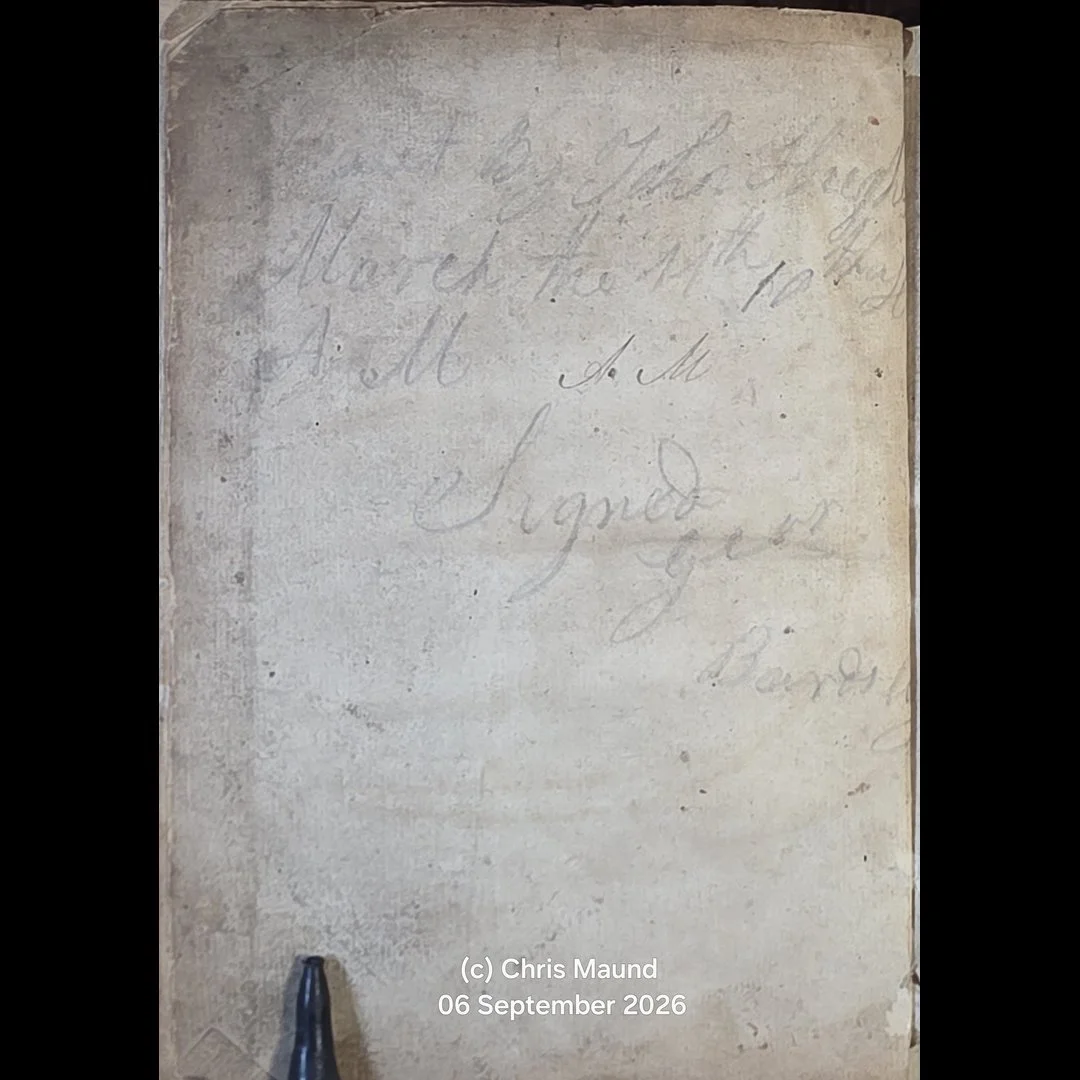 By John Hugh
March the 11th 10
A. M A. M
Signed
geor
Bards
(c) Chris Maund
06 September 2026